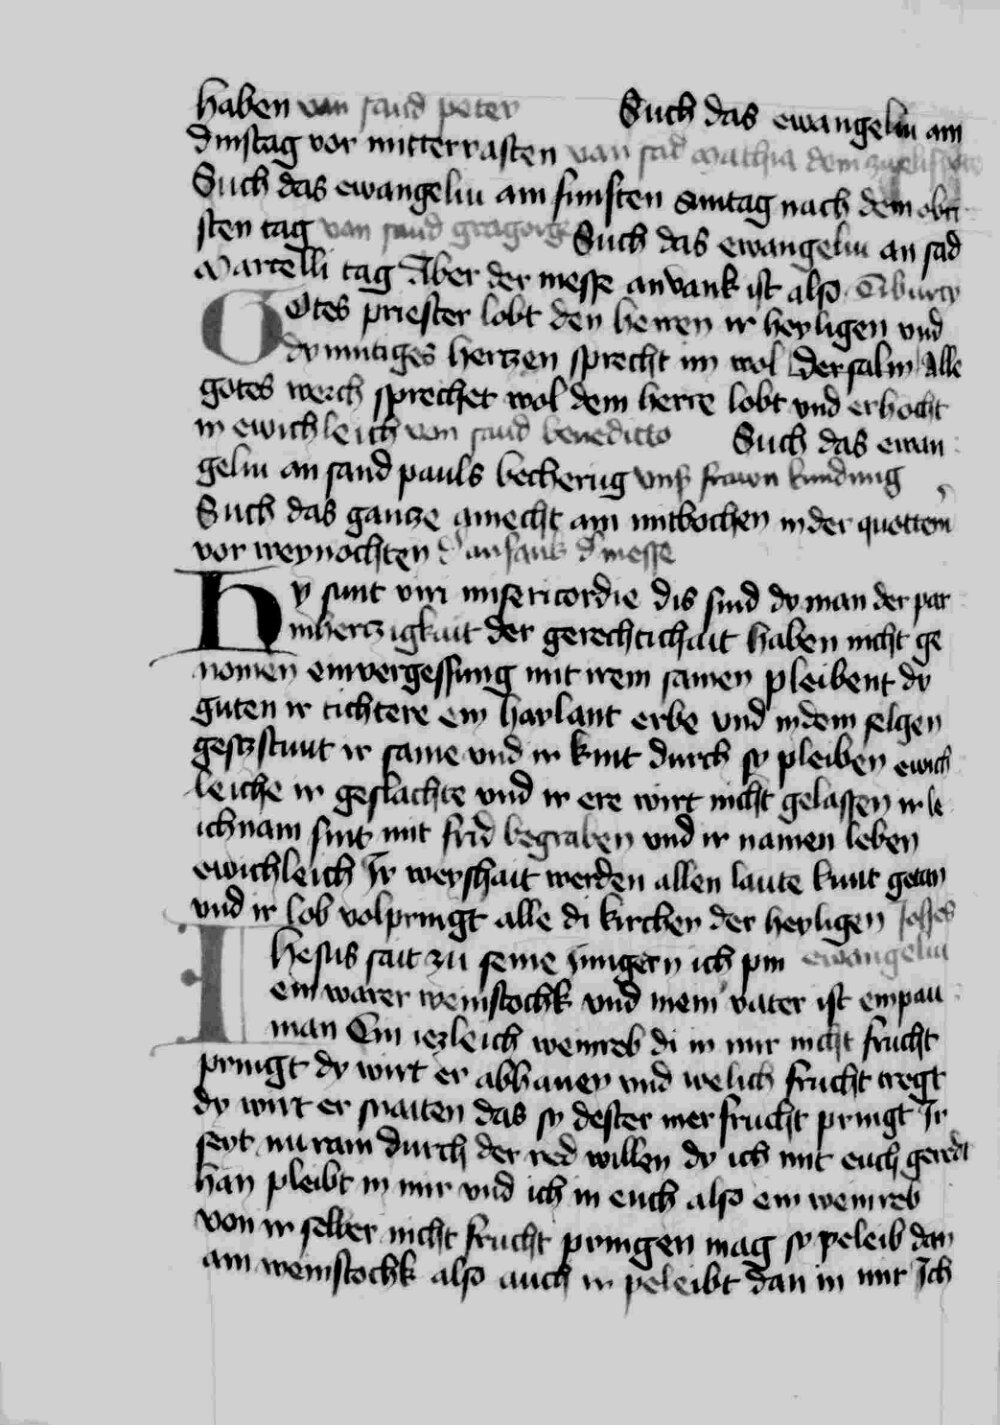 haben von sand peter Such das ewangeliu am
dinstag vor mittervasten von sad Mathia dem
Such das ewangeliu am funften suntag nach dem obri
sten tag von sand gregorge Such das ewangeliu an sad
Marcelli tag Aber der messe anvank ist also
Gotes priester lobt den herren ir heyligen und
dymutiges hertzen sprecht im wol Der salm Alle
gotes werch sprechet wol dem herre lobt und erhocht
in ewichleich von sand benedicto Such das ewan
geliu an sand pauls becherug unß frawn kundung
Such das gantze amecht am mitbochen in der quottem
vor weynachten d' anfank d' messe
Hy sunt viri misericordie dis sind dy man der par
mhertzigkait der gerechtichait haben nicht ge
nomen ein vergessung mit irem samen pleibent dy
guten ir tichtere ein haylant erbe und in dem selgen
gesetz stunt ir same und ir kint durch sy pleiben ewich
leiche ir geslachte und ir ere wirt nicht gelassen ir le
ichnam sint mit frid begraben und ir namen leben
ewichleich Ir weyshait werden allen laute kunt getan
und ir lob volpringt alle di kirchen der heyligen
Ihesus sait zu seine Jungern ich pin ewangeliu
ein warer weinstochk und mein vater ist ein pau
man Ein iezleich weinreb di in mir nicht frucht
pringt dy wirt er abhauen und welich frucht tregt
dy wirt er snaiten das sy dester mer frucht pringt Ir
seyt nu rain durch der red willen dy ich mit euch geredt
han pleibt in mir und ich in euch also ein weinreb
von ir selber nicht frucht pringen mag sy peleib dan
am weinstochk also auch ir peleibt dan in mir Ich